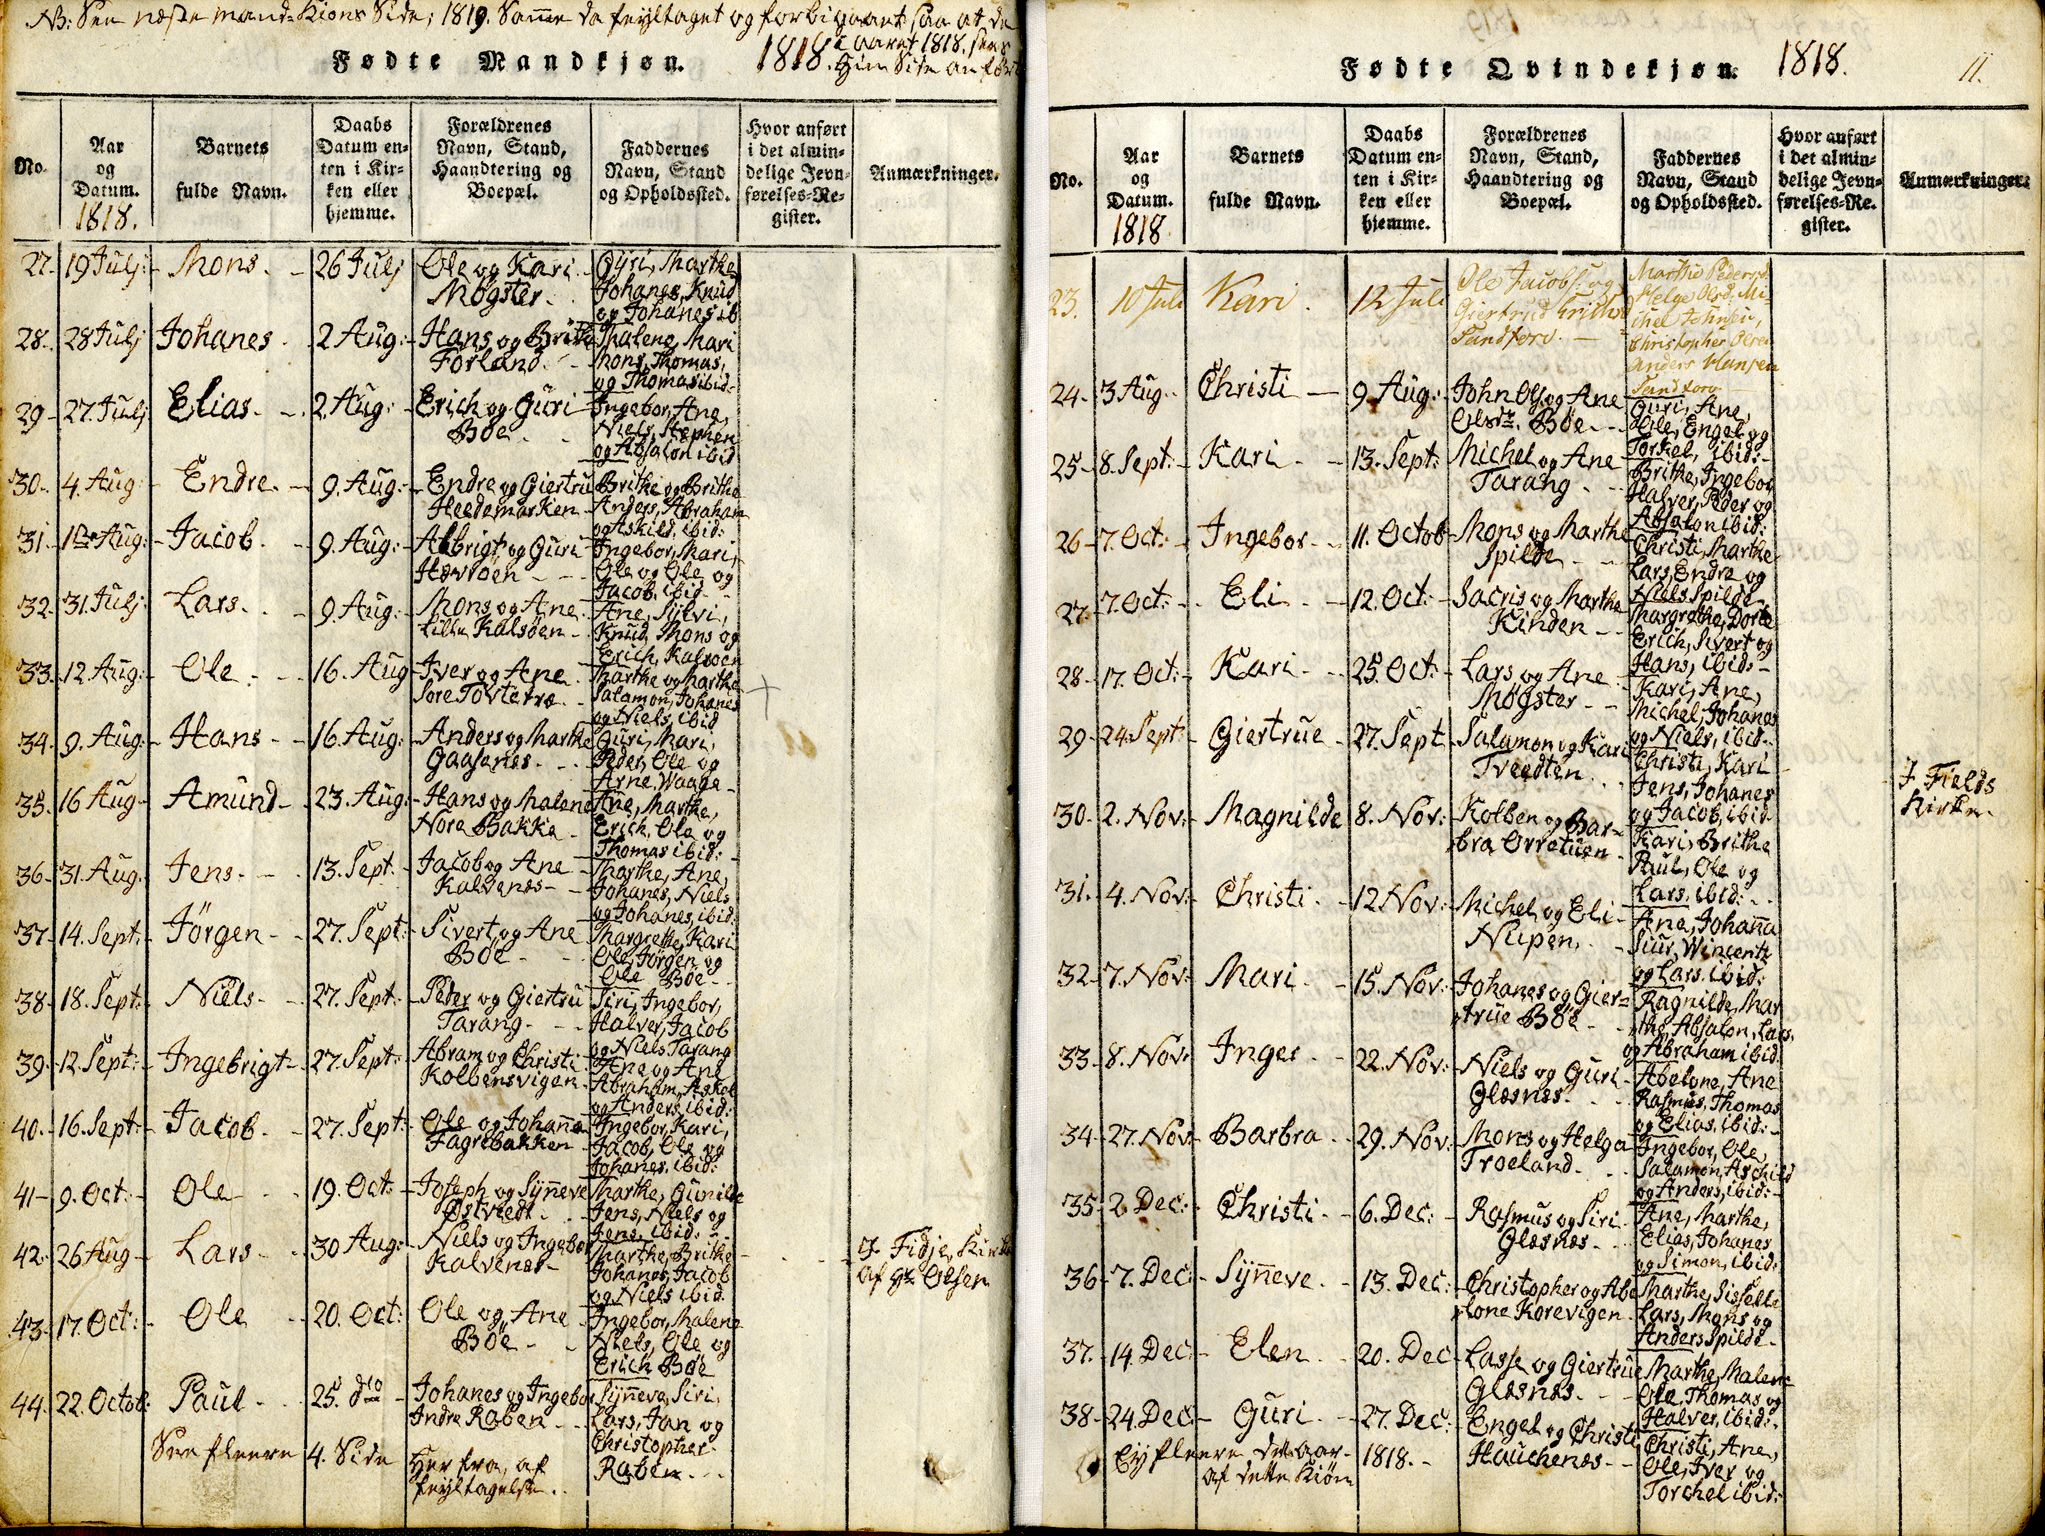 NB: See næste mand-Kiøns Side, 1819. Samme da feyltaget og forbigaaet, saa at de
i Aaret 1818. sees
Fødte Mandkjøn. 1818. Hin Side anført
No.
Aar og Datum. 1818.
Barnets fulde Navn.
Daabs Datum enten i Kirken eller hjemme.
Forældrenes Navn, Stand, Haandtering og Boepæl.
Faddernes Navn, Stand og Opholdssted.
Hvor anført i det almindelige Jevnførelses-Register.
Anmærkninger.
27. 19 Julj: Mons. 26 Julj Ole og Kari Møgster. Gyri, Marthe, Johanes, Knud og Johanes ib
28. 28 Julj Johanes 2 Aug: Hans og Brithe Førland Malene, Mari Mons, Thomas, og Thomas ibid.
29 27. Julj Elias 2 Aug: Erich og Guri Böe Ingebor, Ane, Niels, Stephen og Absalon ibid
30. 4. Aug: Endre 9. Aug: Endre og Giertru Heedemarken Brithe og Brithe Anders, Abraham og Askild, ibid:
31 1de Aug: Jacob 9. Aug: Albrigt og Guri Hævröen Ingebor, Mari, Ole og Ole og Jacob, ibid
32. 31. Julj Lars 9 Aug: Mons og Ane Lille Kalsöen Ane, Sylvi, Knud, Mons og Erich, Kalsøen
33. 12 Aug: Ole 16. Aug Iver og Ane Søre Tovterø Marthe og Marthe Salamon, Johanes og Niels, ibid
34. 9. Aug: Hans 16 Aug: Anders og Marthe Gaasenes Guri, Mari, Peder, Ole og Arne, Waage
35. 16 Aug Amund 23. Aug: Hans og Malene Nore Bakke Ane, Marthe, Erich, Ole og Thomas ibid:
36 31. Aug. Jens 13. Sept. Jacob og Ane Kalvenes Marthe, Ane, Johanes, Niels og Johanes, ibid:
37 14. Sept. Jörgen 27. Sept: Sivert og Ane Böe Margrethe, Kari Ole, Jørgen og Ole Böe
38 18. Sept: Niels 27. Sept: Peder og Giertru Tarang. Siri, Ingebor, Halver, Jacob og Niels Tarang
39. 12. Sept: Ingebrigt 27. Sept: Abram og Christi Kolbensvigen Ane og Ane Abraham, Askel og Anders, ibid:
40. 16. Sept: Jacob 27. Sept: Ole og Johanna Fagrebakken Ingebor, Kari, Jacob, Ole og Johanes, ibid:
41 9. Oct: Ole 19. Oct: Joseph og Synneve Østvedt Marthe, Gunilde Jens, Niels og Jens, ibid:
42. 26 Aug Lars 30 Aug: Niels og Ingebor Kalvenes Marthe, Brithe Johanes, Jacob og Niels ibid. I Fidje, Kirke af Hr Olsen
43. 17. Oct: Ole 20. Oct: Ole og Ane Böe Ingebor, Malene Niels, Ole og Erich Böe
44. 22. Octob: Paul 25. dto Johanes og Ingebor Indre Raben Synneva, Siri, Lars, Jan og Christopher Raben
See fleere 4. Side Her fra, af feyltagelse.
Fødte Qvindekjøn. 1818. 11.
No.
Aar og Datum. 1818
Barnets fulde Navn.
Daabs Datum enten i Kirken eller hjemme.
Forældrenes Navn, Stand, Haandtering og Boepæl.
Faddernes Navn, Stand og Opholdssted.
Hvor anført i det almindelige Jevnførelses-Re. gister.
Anmærkninger.
23. 10 Juli Kari. 12 Juli Ole Jacobs. og Giertrud Erichsd Sandtorv. Marthe Pedersd. Helge Olsd. Michel Johnsen, Christopher Olsen Anders Hansen Sandtorv
24. 3 Aug. Christi 9 Aug: John Ols. og Ane Olsdr. Böe Guri, Ane, Ole, Engel og Torkel, ibid:
25 8. Sept: Kari 13. Sept: Michel og Ane Tarang Brithe, Ingebor Halver, Peder og Absalon ibid:
26 7. Oct: Ingebor 11. Octob Mons og Marthe Spilde Christi, Marthe Lars, Endre og Niels Spilde
27. 7. Oct: Eli 12. Oct: Sacris og Marthe Kinden Margrethe, Dorte Erich, Sivert og Hans, ibid:
28 17. Oct: Kari 25. Oct: Lars og Ane Møgster Kari, Ane, Michel, Johanes og Niels, ibid.
29 24. Sept: Giertrue 27. Sept Salamon og Kari Tveedten Christi, Kari Jens, Johanes og Jacob, ibid. I Fields Kirke.
30. 2. Nov: Magnilde 8. Nov: Kolben og Barbra Orretuen Kari, Brithe Paul, Ole og Lars, ibid:
31. 4. Nov: Christi 12 Nov: Michel og Eli Nupen Ane, Johanna Siur, Wincents og Lars, ibid:
32 7. Nov: Mari 15. Nov: Johanes og Giertrue Böe Ragnilde, Marthe, Absalon, Lars, og Abraham ibid.
33 8. Nov: Inger 22. Nov: Niels og Guri Glesnes Abelone, Ane Rasmus, Thomas og Elias, ibid:
34 27. Nov: Barbra 29. Nov: Mons og Helga Troeland Ingebor, Ole, Salamon, Aschild og Anders, ibid:
35 2 Dec: Christi 6. Dec: Rasmus og Siri Glesnes Ane, Marthe, Elias, Johanes og Simon, ibid:
36 7. Dec: Synneve 13. Dec: Christopher og Abelone Korevigen Marthe, Sisselle Lars, Mons og Anders Spilde
37. 14. Dec: Elen 20. Dec Lasse og Giertrue Glesnes Marthe, Malene Ole, Thomas og Halver, ibid:
38 24. Dec Guri 27. Dec: Engel og Christi Hauchenes Christi, Ane, Ole, Iver og Torchel ibid:
Ey fleere det aar 1818.
af dette Kiøn